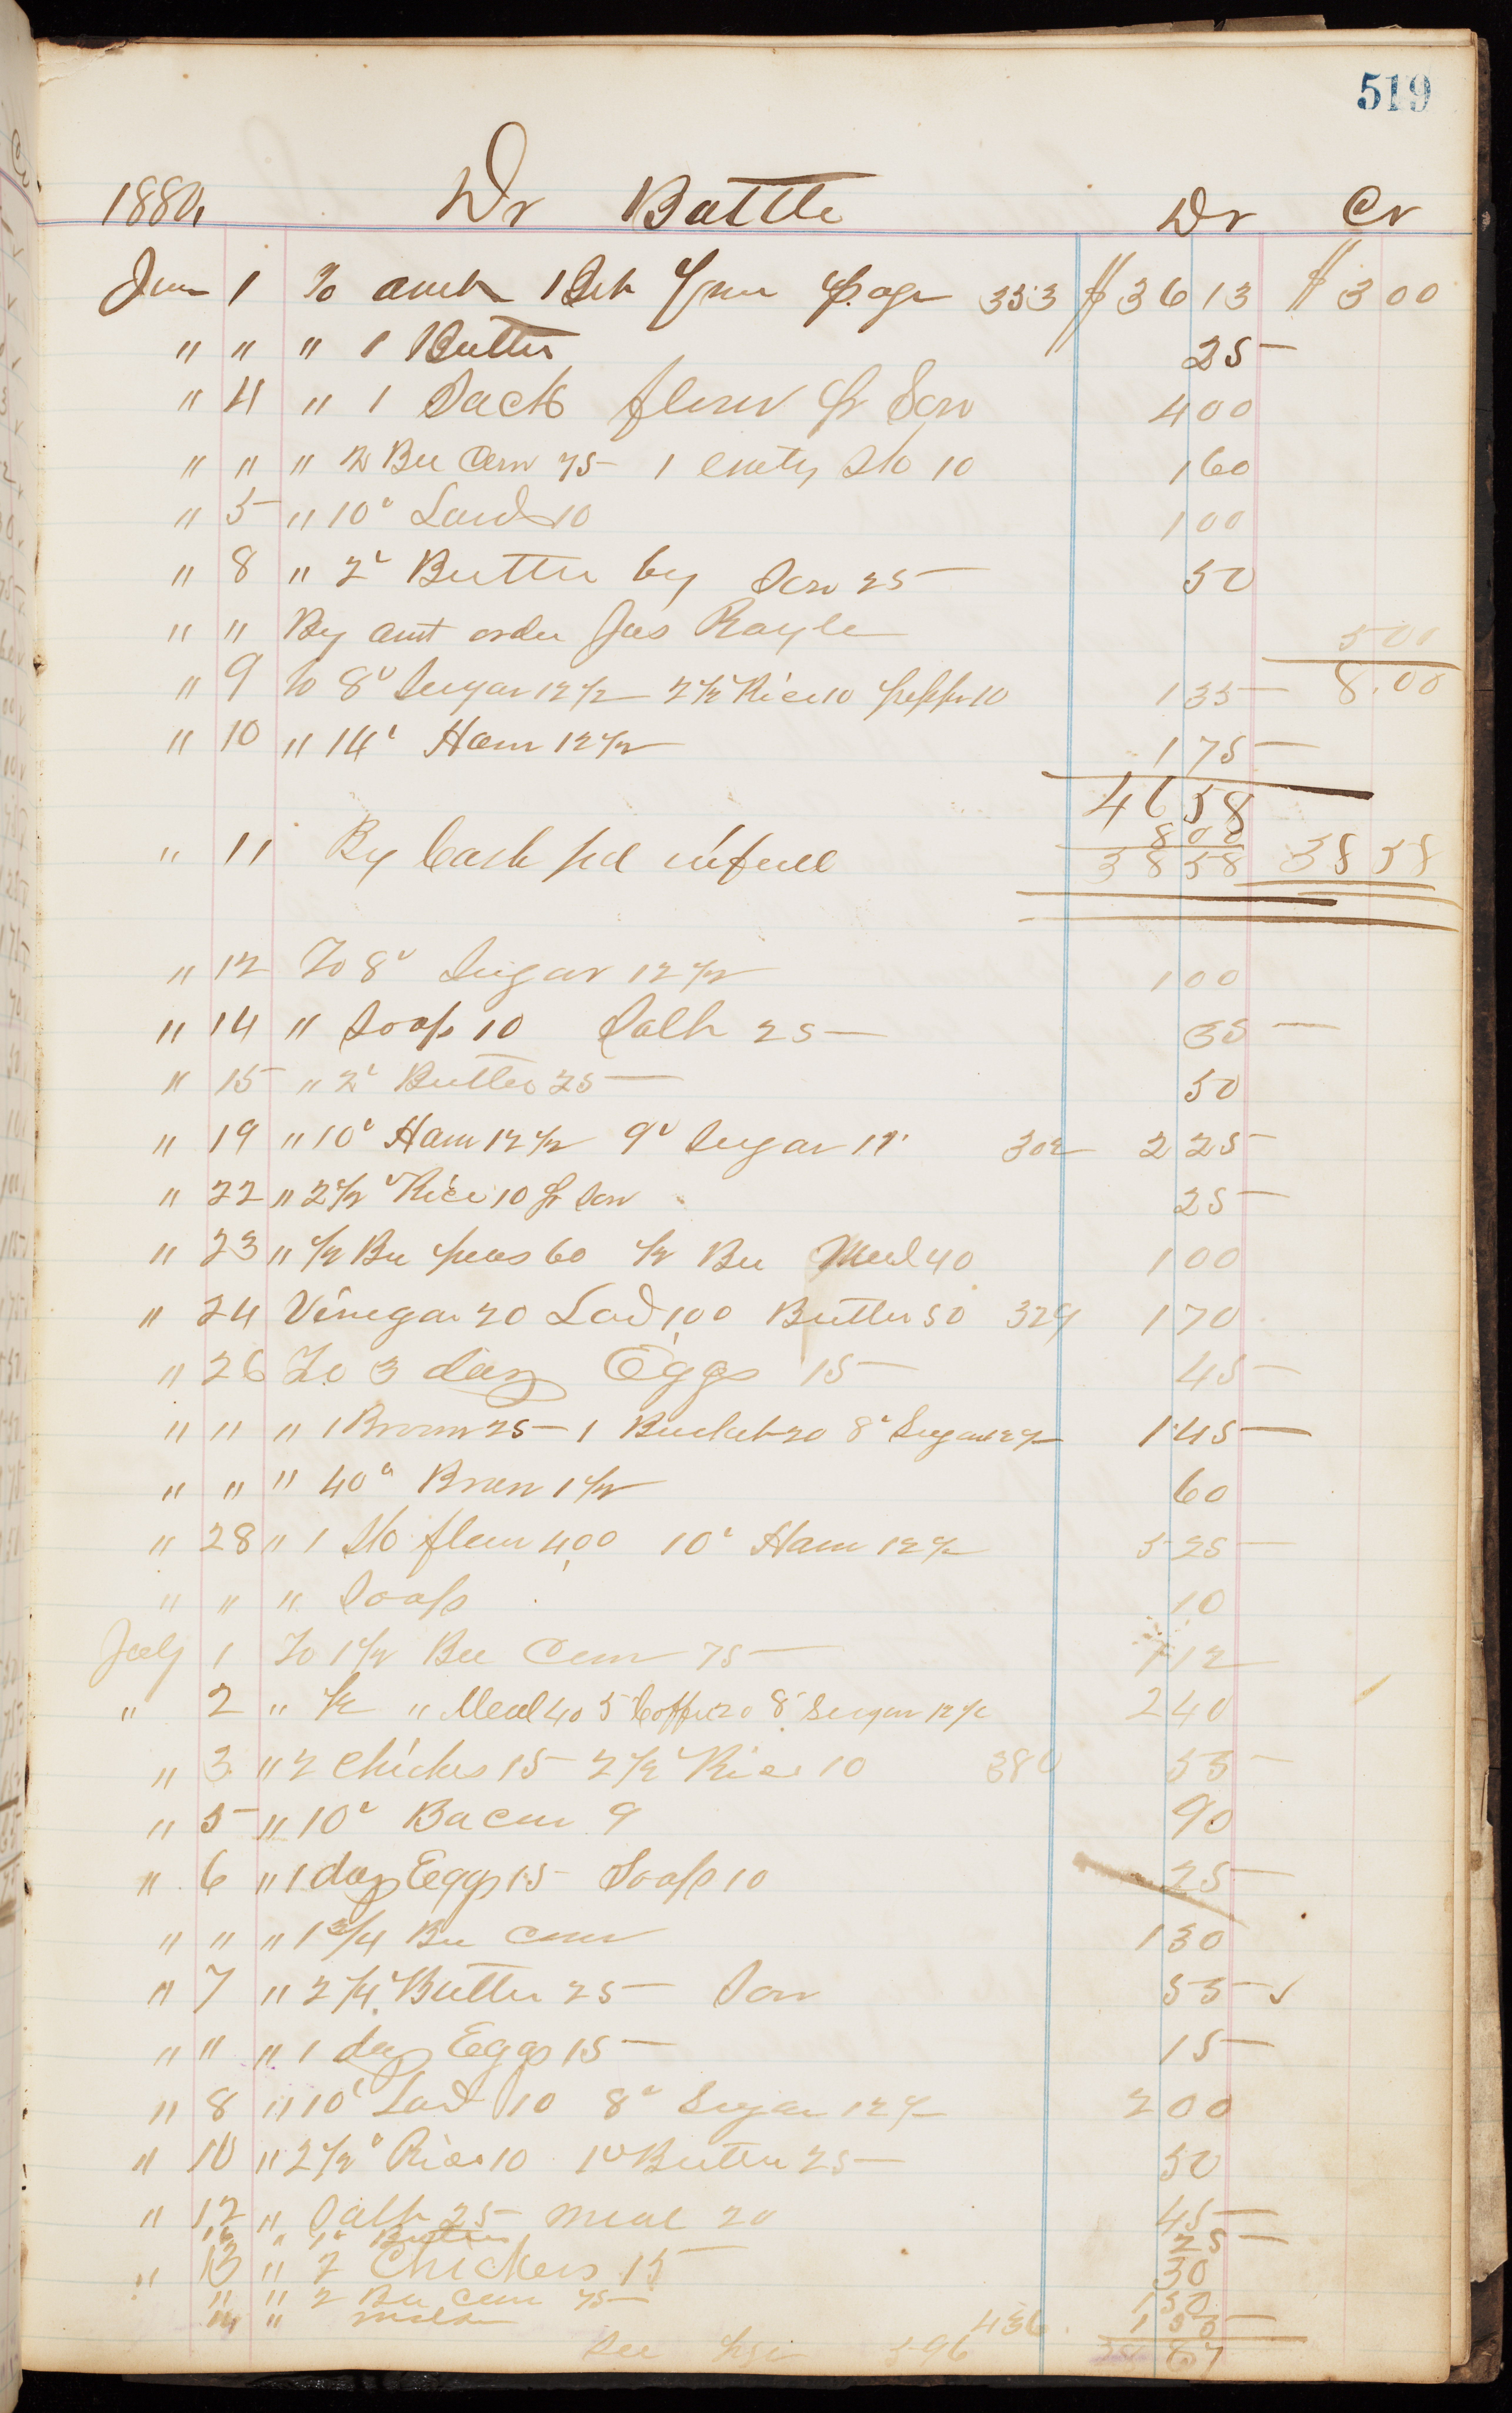 519
1880, Dr Battle Dr Cr
June 1 To amt brt from page 353 $36 13 $3 00
" " " 1 Butter 25
" 4 " 1 Sack flour pr Son 4 00
" " " 2 Bu Corn 75 1 emty Sk 10 1 60
" 5 " 10# Lard 10 1 00
" 8 " 2# Butter by Son 25 50
" " By amt order Jas Rayle 5 00
" 9 to 8# Sugar 12 1/2 2 1/2 Rice 10 pepper 10 1 35 8.00
" 10 " 14# Ham 12 1/2 1 75
46 58
8 00
" 11 By Cash pd in full 38 58 38 58
" 12 To 8# Sugar 12 1/2 1 00
" 14 " Soap 10 Salt 25 35
" 15 " 2# Butter 25 50
" 19 " 10# Ham 12 1/2 9# Sugar 11 302 2 25
" 22 " 2 1/2# Rice 10 pr Son 25
" 23 " 1/2 Bu peas 60 1/2 Bu Meal 40 1 00
" 24 Vinegar 20 Lard 1,00 Butter 50 329 1 70
" 26 To 3 doz Eggs 15 45
" " " 1 Broom 25 1 Bucket 20 8# Sugar 12 1/2 1 45
" " " 40# Bran 1 1/2 60
" 28 " 1 Sk flour 4,00 10# Ham 12 1/2 5 25
" " " Soap 10
July 1 To 1 1/2 Bu Corn 75 1 12
" 2 " 1/2 " Meal 40 5# Coffee 20 8# Sugar 12 1/2 2 40
" 3 " 2 Chickes 15 2 1/2# Rice 10 380 55
" 5 " 10# Bacon 9 90
" 6 " 1 doz Eggs 15 Soap 10 25
" " " 1 3/4 Bu Corn 1 30
" 7 " 2 1/4# Butter 25 Son 55
" " " 1 doz Eggs 15 15
" 8 " 10# Lard 10 8# Sugar 12 1/2 2 00
" 10 " 2 1/2# Rice 10 1# Butter 25 50
" 12 " Salt 25 Meal 20 45
" 1# Butter 25
" 13 " 2 Chickens 15 30
" " 2 Bu Corn 75 1 50
" 436
See page 596 87